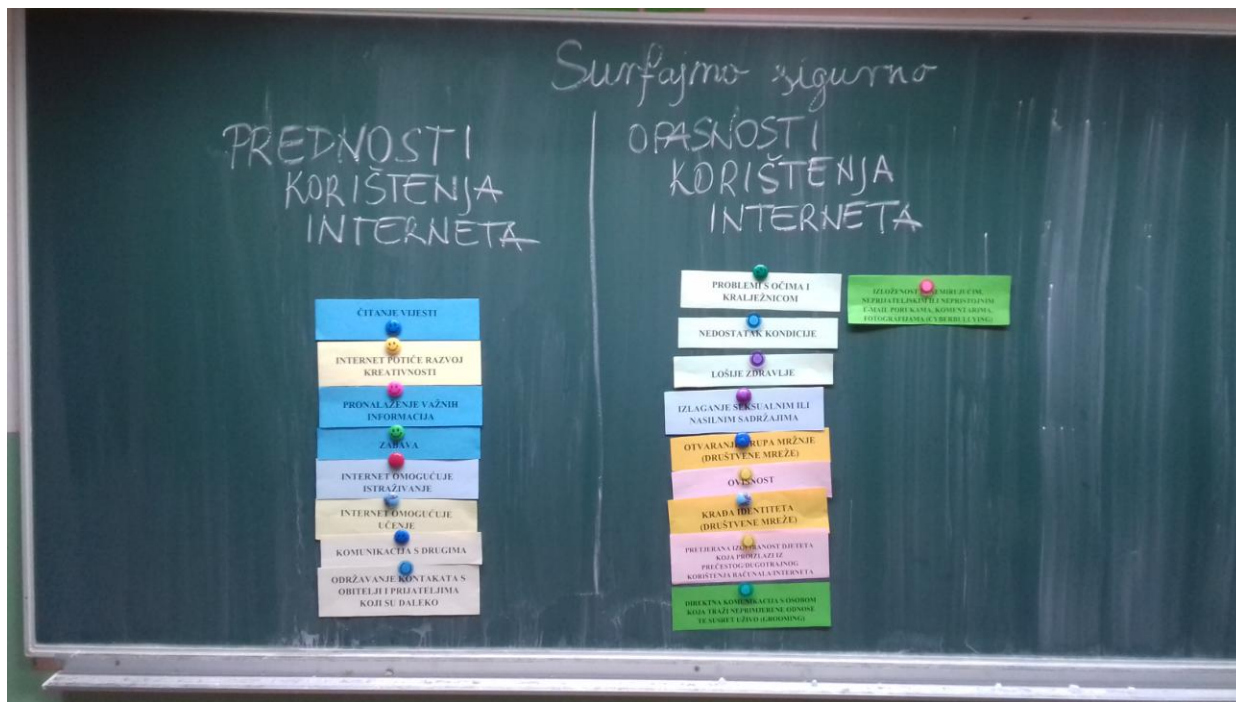 Surfajmo sigurno
PREDNOSTI
KORIŠTENJA
INTERNETA
ČITANJE VIJESTI
INTERNET POTIČE RAZVOJ
KREATIVNOSTI
PRONALAŽENJE VAŽNIH
INFORMACIJA
ZABAVA
INTERNET OMOGUĆUJE
ISTRAŽIVANJE
INTERNET OMOGUĆUJE
UČENJE
KOMUNIKACIJA S DRUGIMA
ODRŽAVANJE KONTAKATA S
OBITELJI I PRIJATELJIMA
KOJI SU DALEKO
OPASNOSTI
KORIŠTENJA
INTERNETA
PROBLEMI S OČIMA I
KRALJEŽNICOM
NEDOSTATAK KONDICIJE
LOŠIJE ZDRAVLJE
IZLAGANJE SEKSUALNIM ILI
NASILNIM SADRŽAJIMA
OTVARANJE GRUPA MRŽNJE
(DRUŠTVENE MREŽE)
OVISNOST
KRAĐA IDENTITETA
(DRUŠTVENE MREŽE)
PRETJERANA IZOLIRANOST DJETETA
KOJA PROIZLAZI IZ
PREČESTOG/DUGOTRAJNOG
KORIŠTENJA RAČUNALA/INTERNETA
DIREKTNA KOMUNIKACIJA S OSOBOM
KOJA TRAŽI NEPRIMJERENE ODNOSE
TE SUSRET UŽIVO (GROOMING)
IZLOŽENOST UZNEMIRUJUĆIM,
NEPRIJATELJSKIM ILI NEPRISTOJNIM
E-MAIL PORUKAMA, KOMENTARIMA,
FOTOGRAFIJAMA (CYBERBULLYING)